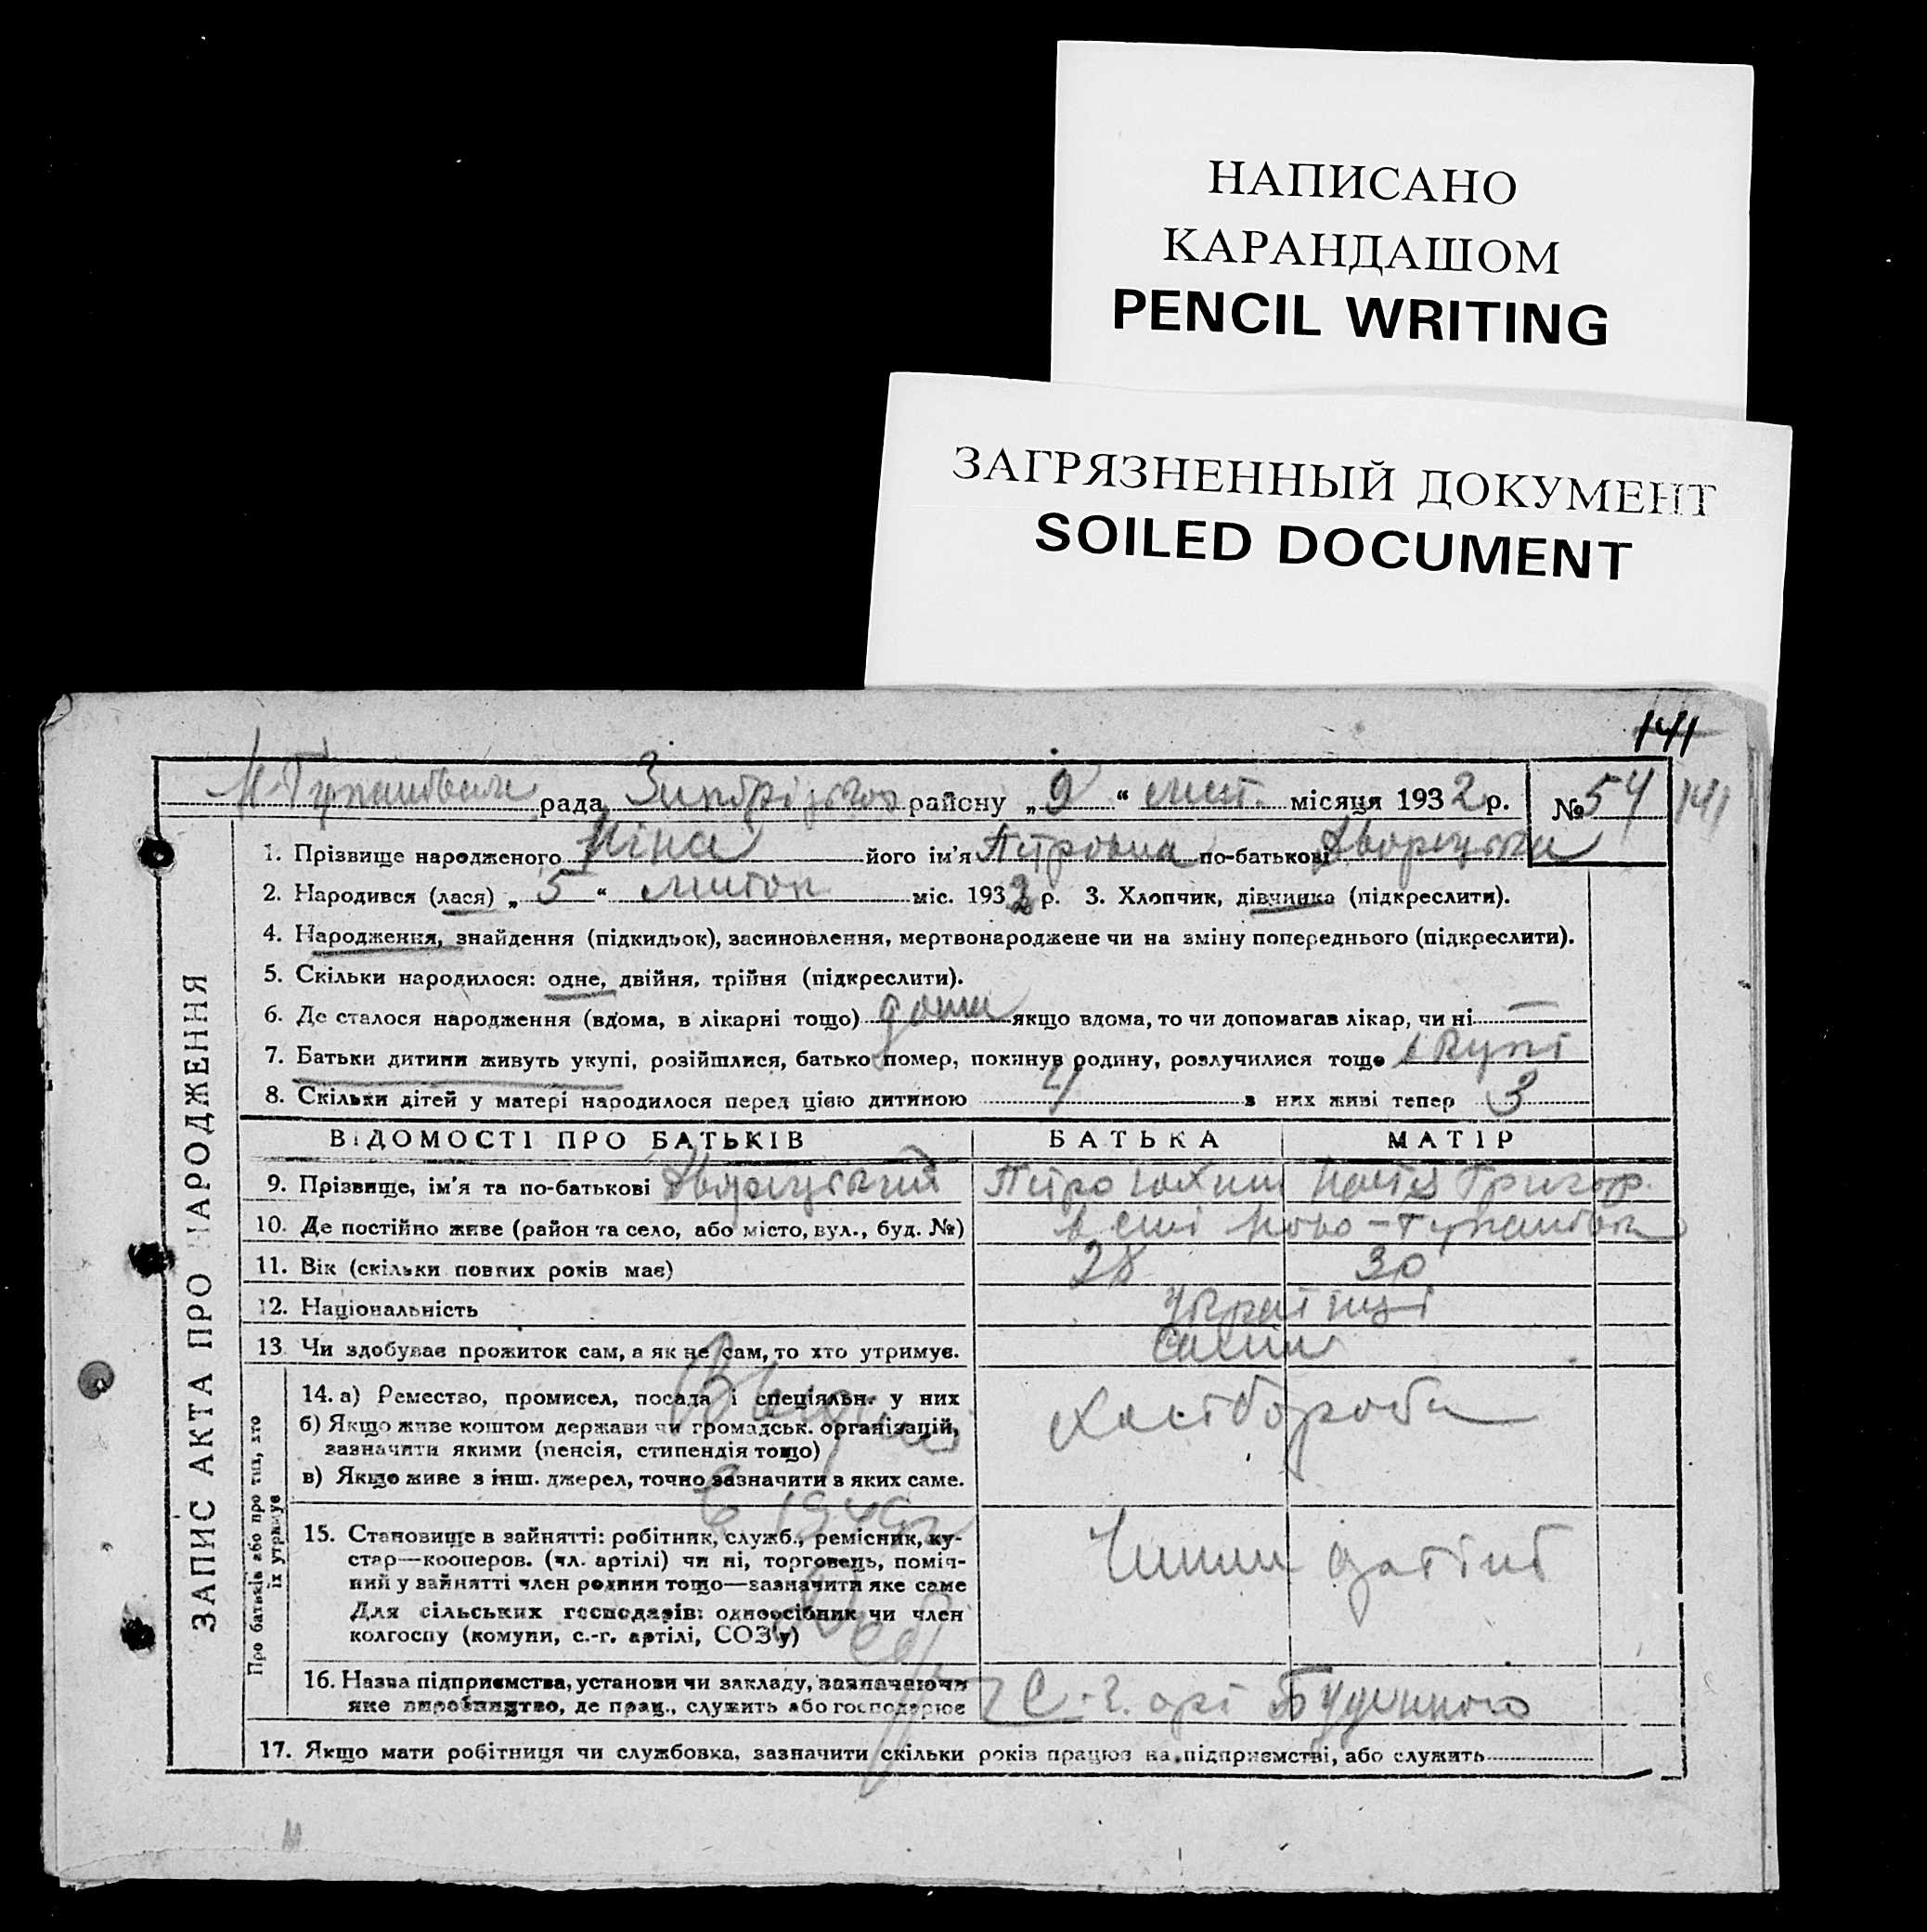 НАПИСАНО
КАРАНДАШОМ
PENCIL WRITING
ЗАГРЯЗНЕННЫЙ ДОКУМЕНТ
SOILED DOCUMENT
141
рада району „ 9 “ лист. місяця 1932 р. № 54 141
1. Прізвище народженого Ніна його ім'я Петровна по-батькові Дворецька
2. Народився (лася) „ 5 “ листоп міс. 1932 р. 3. Хлопчик, дівчинка (підкреслити).
4. Народження, знайдення (підкидьок), засиновлення, мертвонароджене чи на зміну попереднього (підкреслити).
5. Скільки народилося: одне, двійня, трійня (підкреслити).
6. Де сталося народження (вдома, в лікарні тощо) дома якщо вдома, то чи допомагав лікар, чи ні —
7. Батьки дитини живуть укупі, розійшлися, батько помер, покинув родину, розлучилися тощо вкупі
8. Скільки дітей у матері народилося перед цією дитиною 4 з них живі тепер 3
ЗАПИС АКТА ПРО НАРОДЖЕННЯ
ВІДОМОСТІ ПРО БАТЬКІВ БАТЬКА МАТІР
9. Прізвище, ім'я та по-батькові Дворецький Петро Юхим Настя Григор.
10. Де постійно живе (район та село, або місто, вул., буд. №) в селі Ново-
11. Вік (скільки повних років має) 28 30
12. Національність Українці
13 Чи здобуває прожиток сам, а як не сам, то хто утримує. Сами
Про батьків або про тих, хто
їх утримує
14. а) Ремество, промисел, посада і спеціяльн. у них Хлібороби
б) Якщо живе коштом держави чи громадськ. організацій,
зазначити якими (пенсія, стипендія тощо)
в) Якщо живе з інш. джерел, точно зазначити з яких саме.
15. Становище в зайнятті: робітник, служб., ремісник, ку-
стар—кооперов. (чл. артілі) чи ні, торговець, поміч-
ний у зайнятті член родини тощо—зазначити яке саме
Для сільських господарів: одноосібник чи член
колгоспу (комуни, с.-г. артілі, СОЗ'у)
Члени
16. Назва підприємства, установи чи закладу, зазначаючи
яке виробництво, де прац., служить або господарює
С.-г. арт Будьонного
17. Якщо мати робітниця чи службовка, зазначити скільки років працює на підприємстві, або служить